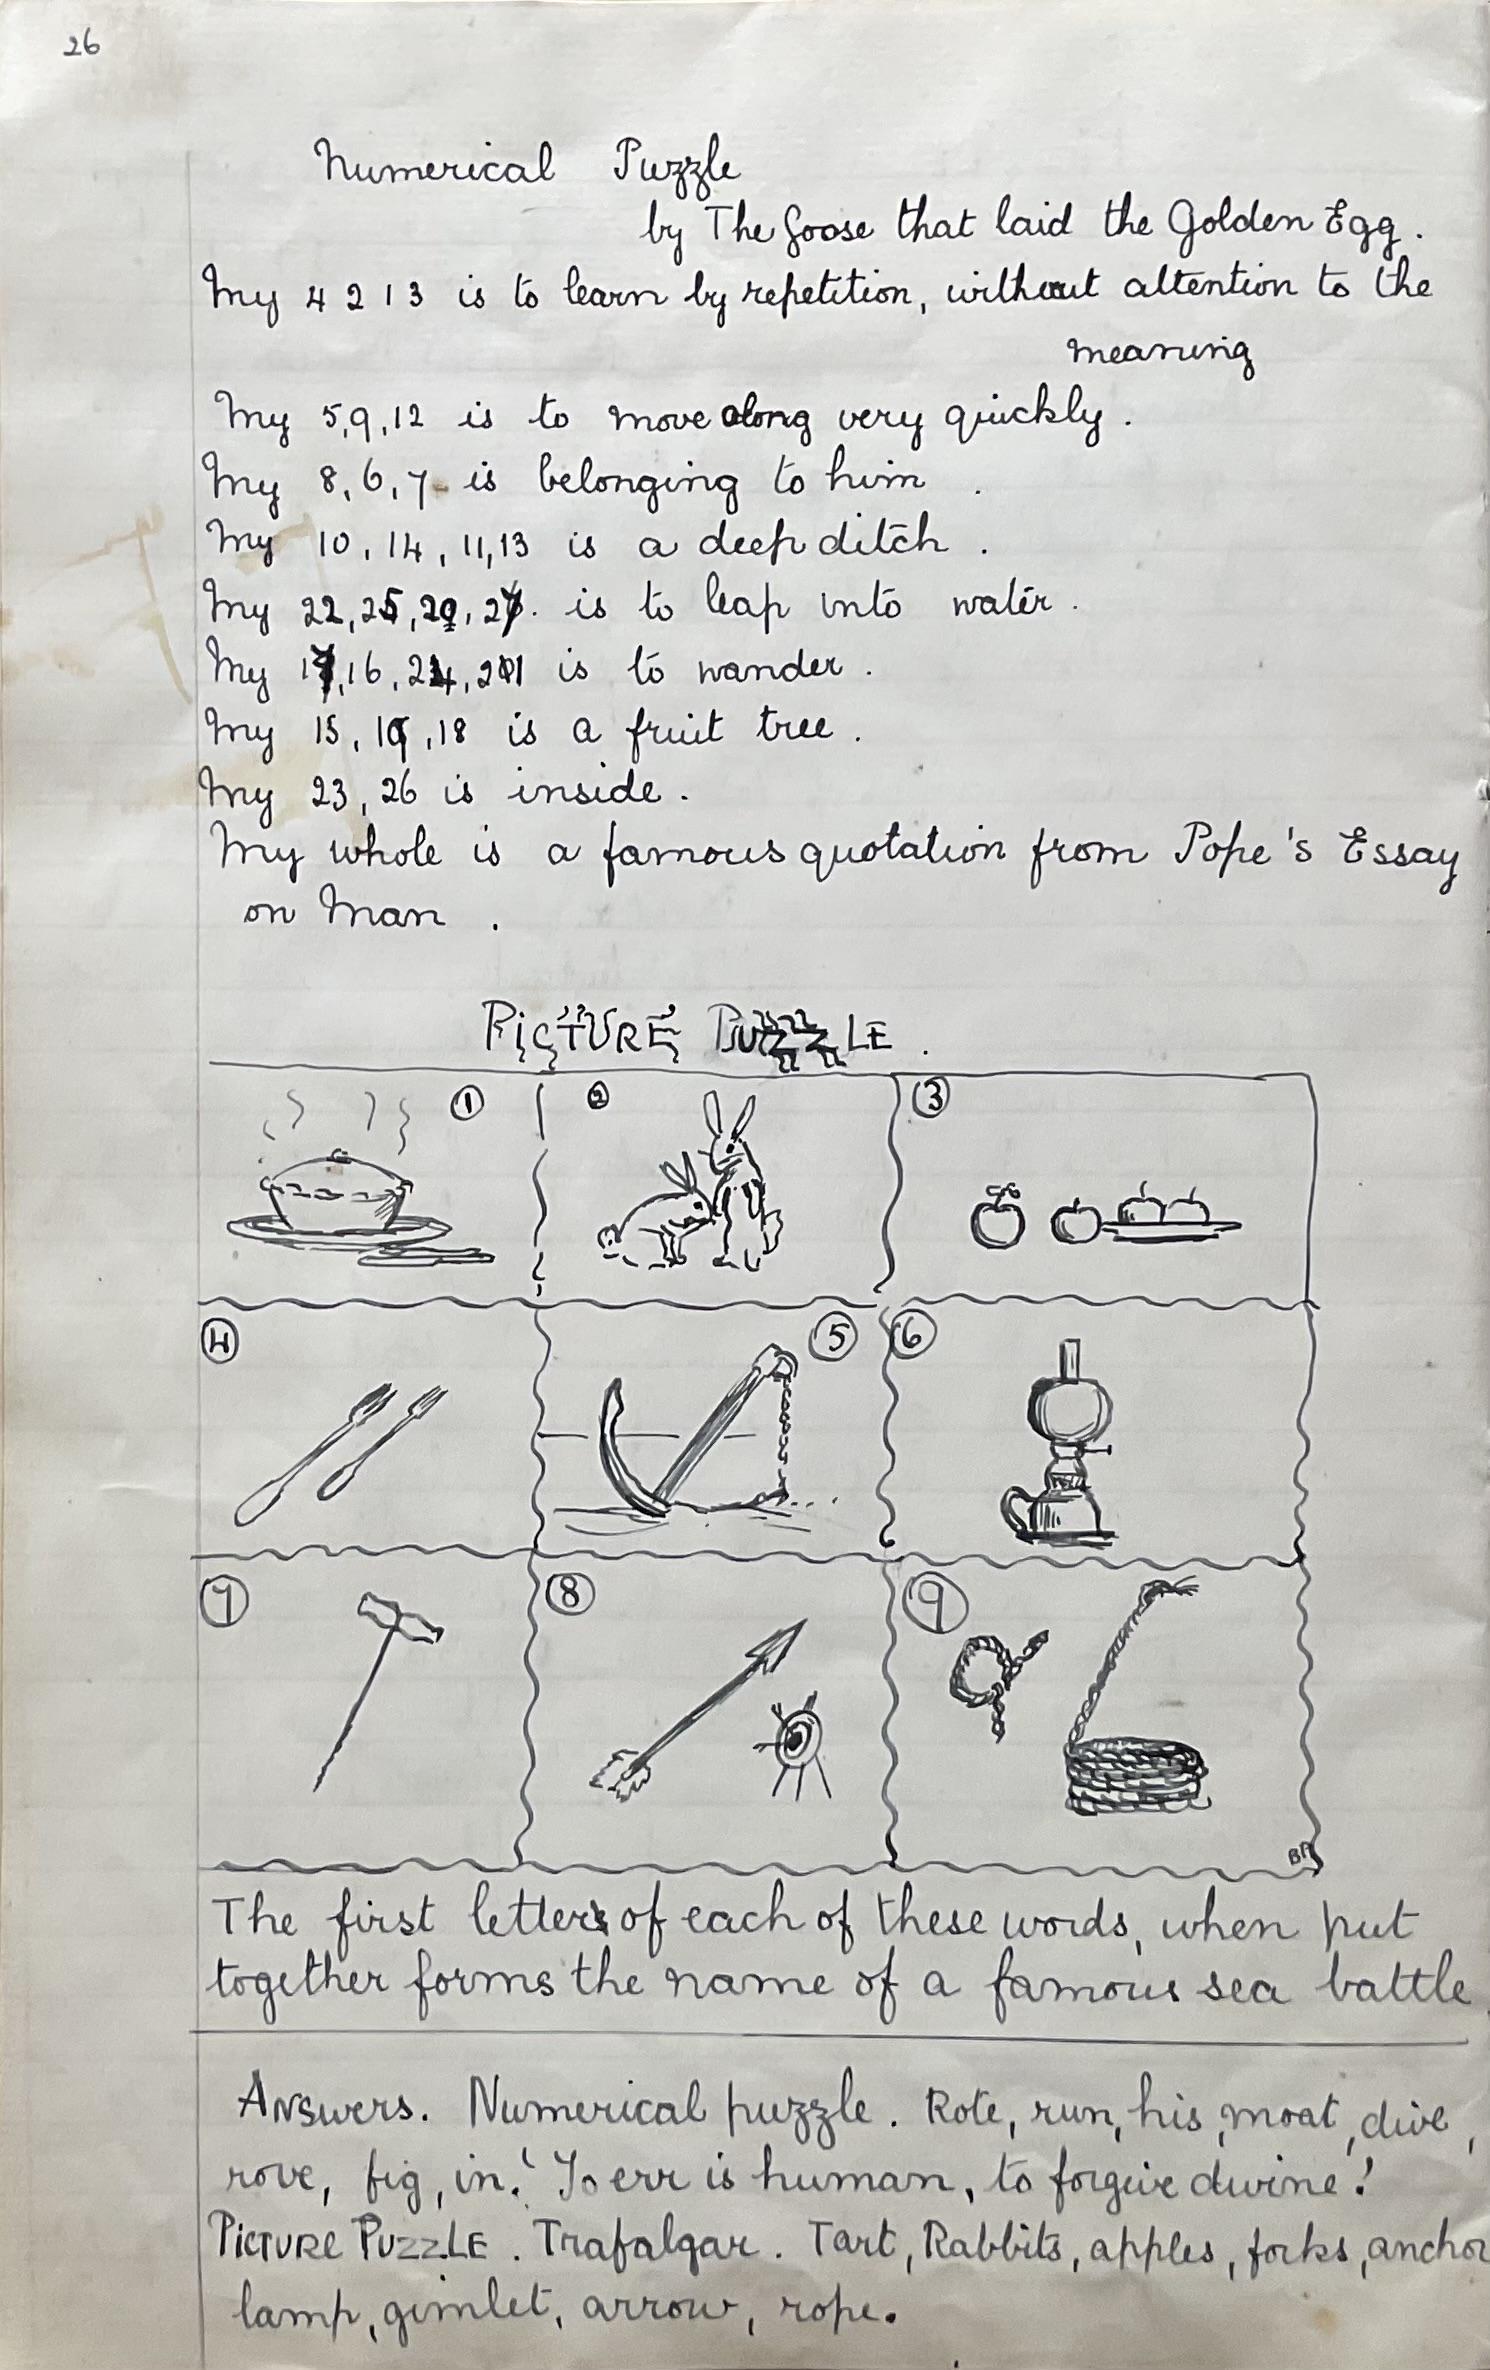 26
Numerical Puzzle
by The Goose that laid the Golden Egg.
My 4 2 1 3 is to learn by repetition, without attention to the
meaning
My 5,9,12 is to move along very quickly.
My 8,6,7 is belonging to him.
My 10, 14, 11,13 is a deep ditch.
My 22,25,20,27. is to leap into water.
My 17,16,24,21 is to wander.
My 15, 19, 18 is a fruit tree.
My 23, 26 is inside.
My whole is a famous quotation from Pope's Essay
on Man.
PICTURE PUZZLE.
① ② ③
④ ⑤ ⑥
⑦ ⑧ ⑨
BA
The first letters of each of these words, when put
together forms the name of a famous sea battle
Answers. Numerical puzzle. Rote, run, his, moat, dive,
rove, fig, in. 'To err is human, to forgive divine!'
PICTURE PUZZLE. Trafalgar. Tart, Rabbits, apples, forks, anchor
lamp, gimlet, arrow, rope.